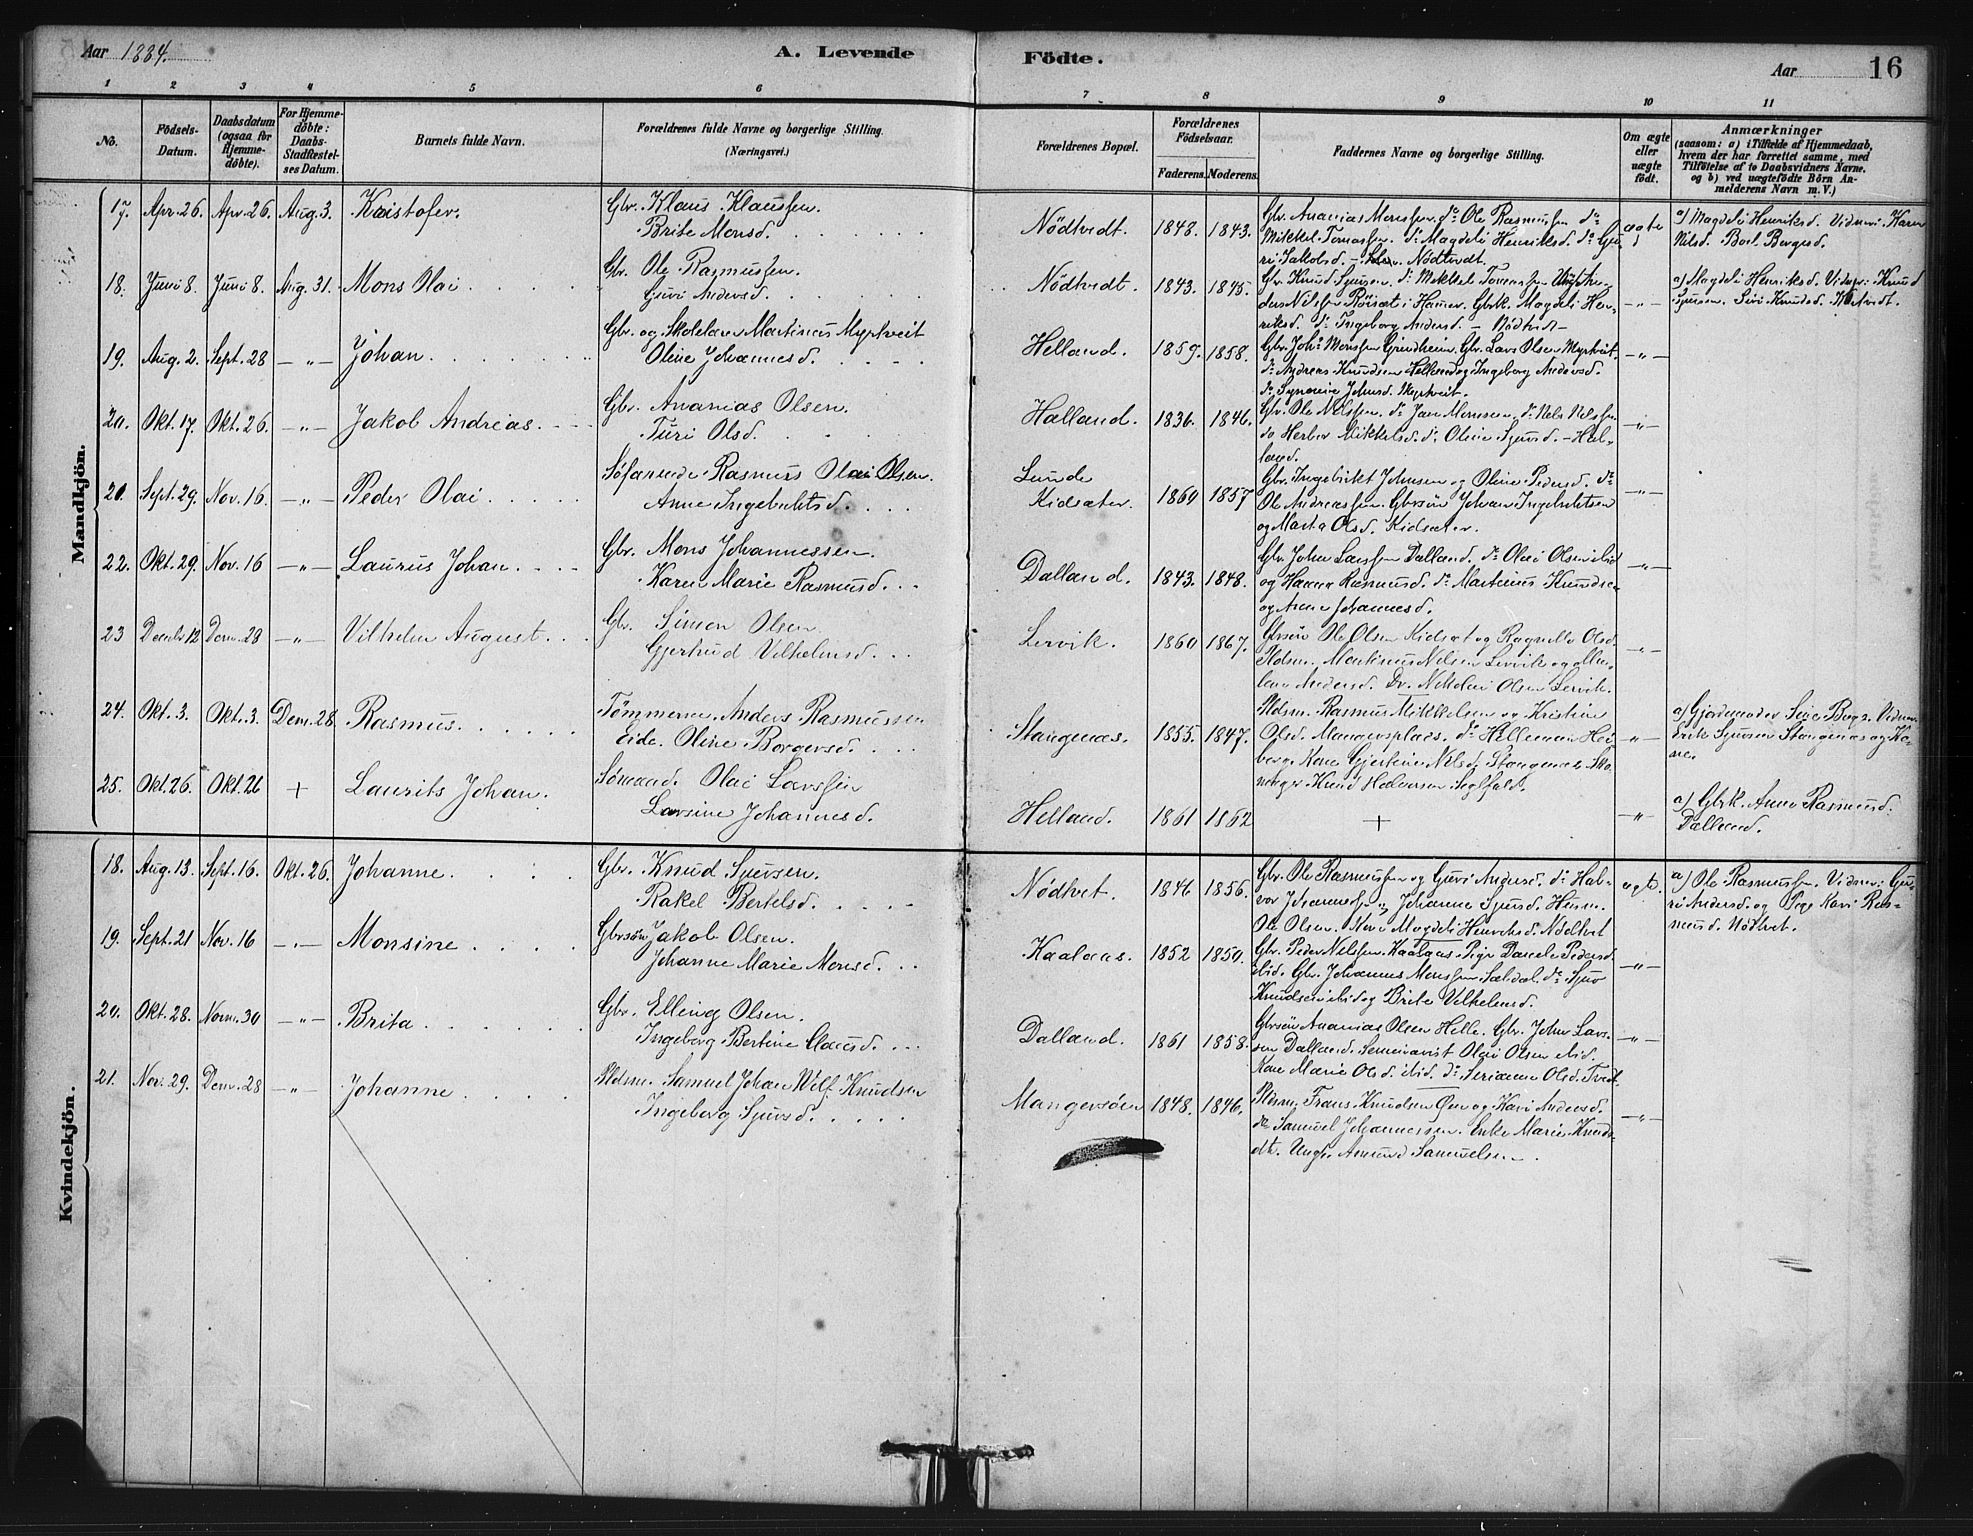 Aar 1884.
A. Levende
Födte.
Aar
16
1 2 3 4 5 6 7 8 9 10 11
No.
Födsels-
Datum.
Daabsdatum
(ogsaa for
Hjemme-
döbte).
For Hjemme-
döbte:
Daabs-
Stadfæstel-
ses Datum.
Barnets fulde Navn.
Forældrenes fulde Navne og borgerlige Stilling.
(Næringsvei.)
Forældrenes Bopæl.
Forældrenes
Födselsaar.
Faderens. Moderens.
Faddernes Navne og borgerlige Stilling.
Om ægte
eller
uægte
födt.
Anmærkninger
(saasom: a) i Tilfælde af Hjemmedaab,
hvem der har forrettet samme, med
Tilföielse af to Daabsvidners Navne,
og b) ved uægtefödte Börn An-
melderens Navn m. V.)
Mandkjön.
17. Apr. 26. Apr. 26. Aug. 3. Kristofer. Gbr. Klaus Klaussen.
Brite Monsd.
Nödtvedt. 1848. 1843.
Gbr. Ananias Monssen. do Ole Rasmussen do
Mikkel Tomassen. do Magdeli Henriksd. do Gu-
ri Jakobsd. Nödtvedt.
ægte
a) Magdeli Henriksd. Vidner: Karen
Nilsd. Borl. Borgesd.
18. Juni 8. Juni 8. Aug. 31. Mons Olai Gbr. Ole Rasmussen.
Guri Andersd.
Nödtvedt. 1843. 1845.
Gbr. Knud Sjursen. do Mikkel Tomassen
ders Nilsen Röiset i Hamer. Gbrk. Magdeli Hen-
riksd. do Ingeborg Andersd. - Nödtvedt -
-"-
a) Magdeli Henriksd. Vidner: Knud
Sjursen, Siri Knudsd. Nödtvedt.
19. Aug. 2. Sept. 28 -"- Johan. Gbr. og Skolelærer Martinus Myrtveit
Oline Johannesd.
Helland. 1859. 1858.
Gbr. Johs Monssen Grindheim. Gbr. Lars Olsen Myrtveit.
do Andreas Knudsen Helland og Ingeborg Andersd.
do Synneve Johnsd. Myrtveit.
-"-
20. Okt. 17. Okt. 26. -"- Jakob Andreas. Gbr. Ananias Olsen.
Turi Olsd.
Halland. 1836. 1846.
Gbr. Ole Nilssen. do Jan Monssen, do Nels Nelssen
do Herbor Mikkelsd. do Oline Sjursd. - Hal-
land.
-"-
20. Sept. 29. Nov. 16. -"- Peder Olai Söfarende Rasmus Olai Olsen.
Anne Ingebrktsd.
Lunde
Kidsæter. 1860 1857
Gbr. Ingebrikt Johnsen og Oline Pedersd. do
Ole Andreassen. Gbrsön Johan Ingebriktsen
og Marta Olsd. Kidsæter.
-"-
22. Okt. 29. Nov. 16 -"- Laurus Johan. Gbr. Mons Johannessen.
Karen Marie Rasmusd.
Dalland. 1843. 1848.
Gbr. John Larssen Dalland. do Olai Olsen ibid
og Hanna Rasmusd. do Martinus Knudsen
og Anne Johannesd.
-"-
23 Decmb. 12 Decm. 28 -"- Vilhelm August. Gbr. Simon Olsen
Gjertrud Vilhelmsd.
Lervik. 1860 1867.
Gbrsön Ole Olsen Kidsæt og Ragnille Olsd.
Pldsm. Martinus Nilsen Lervik og Ma-
lene Andersd. Dr. Nikolai Olsen Lervik.
-"-
24. Okt. 3. Okt. 3. Decm. 28. Rasmus. Tömmerm. Anders Rasmussen
Eide. Oline Borgersd.
Stangenæs. 1855. 1847.
Pldsm. Rasmus Mikkelsen og Kristine
Olsd. Mangersplads. do Helleman Hei-
berg. Kone Gjertine Nilsd. Stangenes
Knud Halvorsen Seglfald.
-"-
a) Gjordemoder Sire Berge. Vidner:
Erik Sjursen Stangenæs og Ko-
ne.
25. Okt. 26. Okt. 26 + Laurits Johan. Sömand. Olai Larssen
Larsine Johannesd.
Helland. 1861 1862
+
-"-
a) Gbrk. Anne Rasmusd.
Dalland.
Kvindekjön.
18. Aug. 13 Sept. 16. Okt. 26. Johanne. Gbr. Knud Sjursen.
Rakel Bertelsd.
Nödtvet. 1846. 1856.
Gbr. Ole Rasmussen og Guri Andersd. do Hal-
vor Johannessen, Johanne Sjursd. Husm.
Ole Olsen. Kone Magdeli Henriksd. Nödtvet
ægte.
a) Ole Rasmussen. Vidner: Gu-
ri Andersd. og Pige Kari Ras-
musd. Nödtvet.
19. Sept. 21 Nov. 16 -"- Monsine Gbrsön Jakob Olsen.
Johanne Marie Monsd.
Kaalaas. 1852 1850.
Gbr. Peder Nilssen Kaalaas. Pige Danele Pedersd.
ibid. Gbr. Johannes Monssen Sældal. do Sjur
Knudsen ibid og Brite Vilhelmsd.
-"-
20. Okt. 28. Novm. 30 -"- Brita. Gbr. Elling Olsen.
Ingeborg Bertine Clausd.
Dalland. 1861 1858.
Gbrsön Ananias Olsen Helle. Gbr. John Lars-
sen Dalland. Seminarist Olai Olsen ibid.
Kone Marie Olsd. ibid. do Serianne Olsd. Tvet
-"-
21. Nov. 29. Decm. 28 -"- Johanne Pldsm. Samuel Johan Wilf. Knudsen
Ingeborg Sjursd.
Mangersöen 1848. 1846.
Pldsm. Frans Knudsen Öen og Kari Andersd.
do Samuel Johannessen. Enke Marie Knuds-
dtr. Ungk. Amund Samuelsen.
-"-